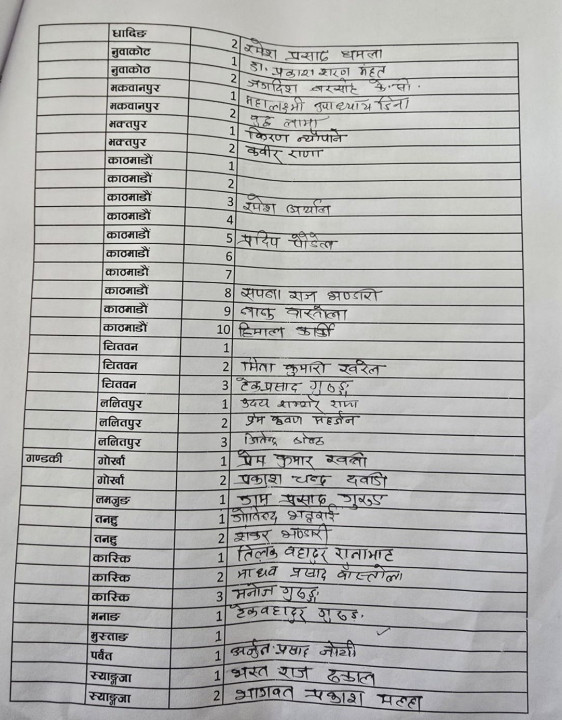 धादिङ 2 रमेश प्रसाद धमला
नुवाकोट 1 डा. प्रकाश शरण महत
नुवाकोठ 2 जगदिश नरसिंह के.सी.
मकवानपुर 1 महालक्ष्मी उपाध्याय डिना
मकवानपुर 2 बुद्ध लामा
भक्तपुर 1 किरण न्यौपाने
भक्तपुर 2 कवीर राणा
काठमाडौं 1
काठमाडौं 2
काठमाडौं 3 रमेश अर्याल
काठमाडौं 4
काठमाडौं 5 प्रदिप पौडेल
काठमाडौं 6
काठमाडौं 7
काठमाडौं 8 सपना राज भण्डारी
काठमाडौं 9
काठमाडौं 10 हिमाल कार्की
चितवन 1
चितवन 2 मिना कुमारी खरेल
चितवन 3 टेकप्रसाद गुरुङ्ग
ललितपुर 1 उदय शम्शेर राणा
ललितपुर 2 प्रेम कृष्ण महर्जन
ललितपुर 3 जितेन्द्र श्रेष्ठ
गण्डकी गोर्खा 1 प्रेम कुमार खत्री
गोर्खा 2 प्रकाश चन्द्र दवाडी
लमजुङ 1 प्रसाद गुरुङ
तनहु 1 गोविन्द भट्टराई
तनहु 2 शंकर भण्डारी
कास्कि 1 तिलक वहादुर रानाभाट
कास्कि 2 माधव प्रसाद वास्तोला
कास्कि 3 मनोज गुरुङ्ग
मनाङ 1 टेकवहादुर गुरुङ.
मुस्ताङ 1
पर्वत 1 अर्जुन प्रसाद जोशी
स्याङ्गजा 1 भरत राज ढकाल
स्याङ्गजा 2 भागवत प्रकाश मल्ल